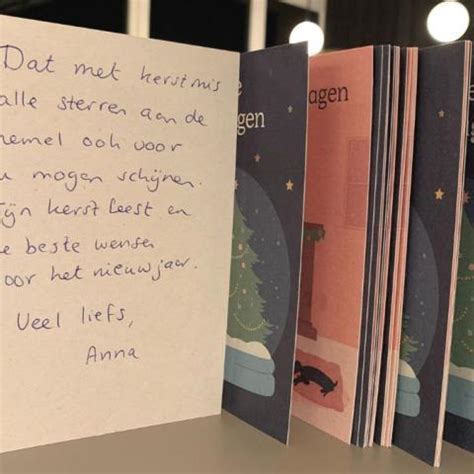 Dat met kerstmis
alle sterren aan de
hemel ook voor
u mogen schijnen.
ijn kerst feest en
e beste wensen
oor het nieuwjaar.
Veel liefs,
Anna
e
gen
agen